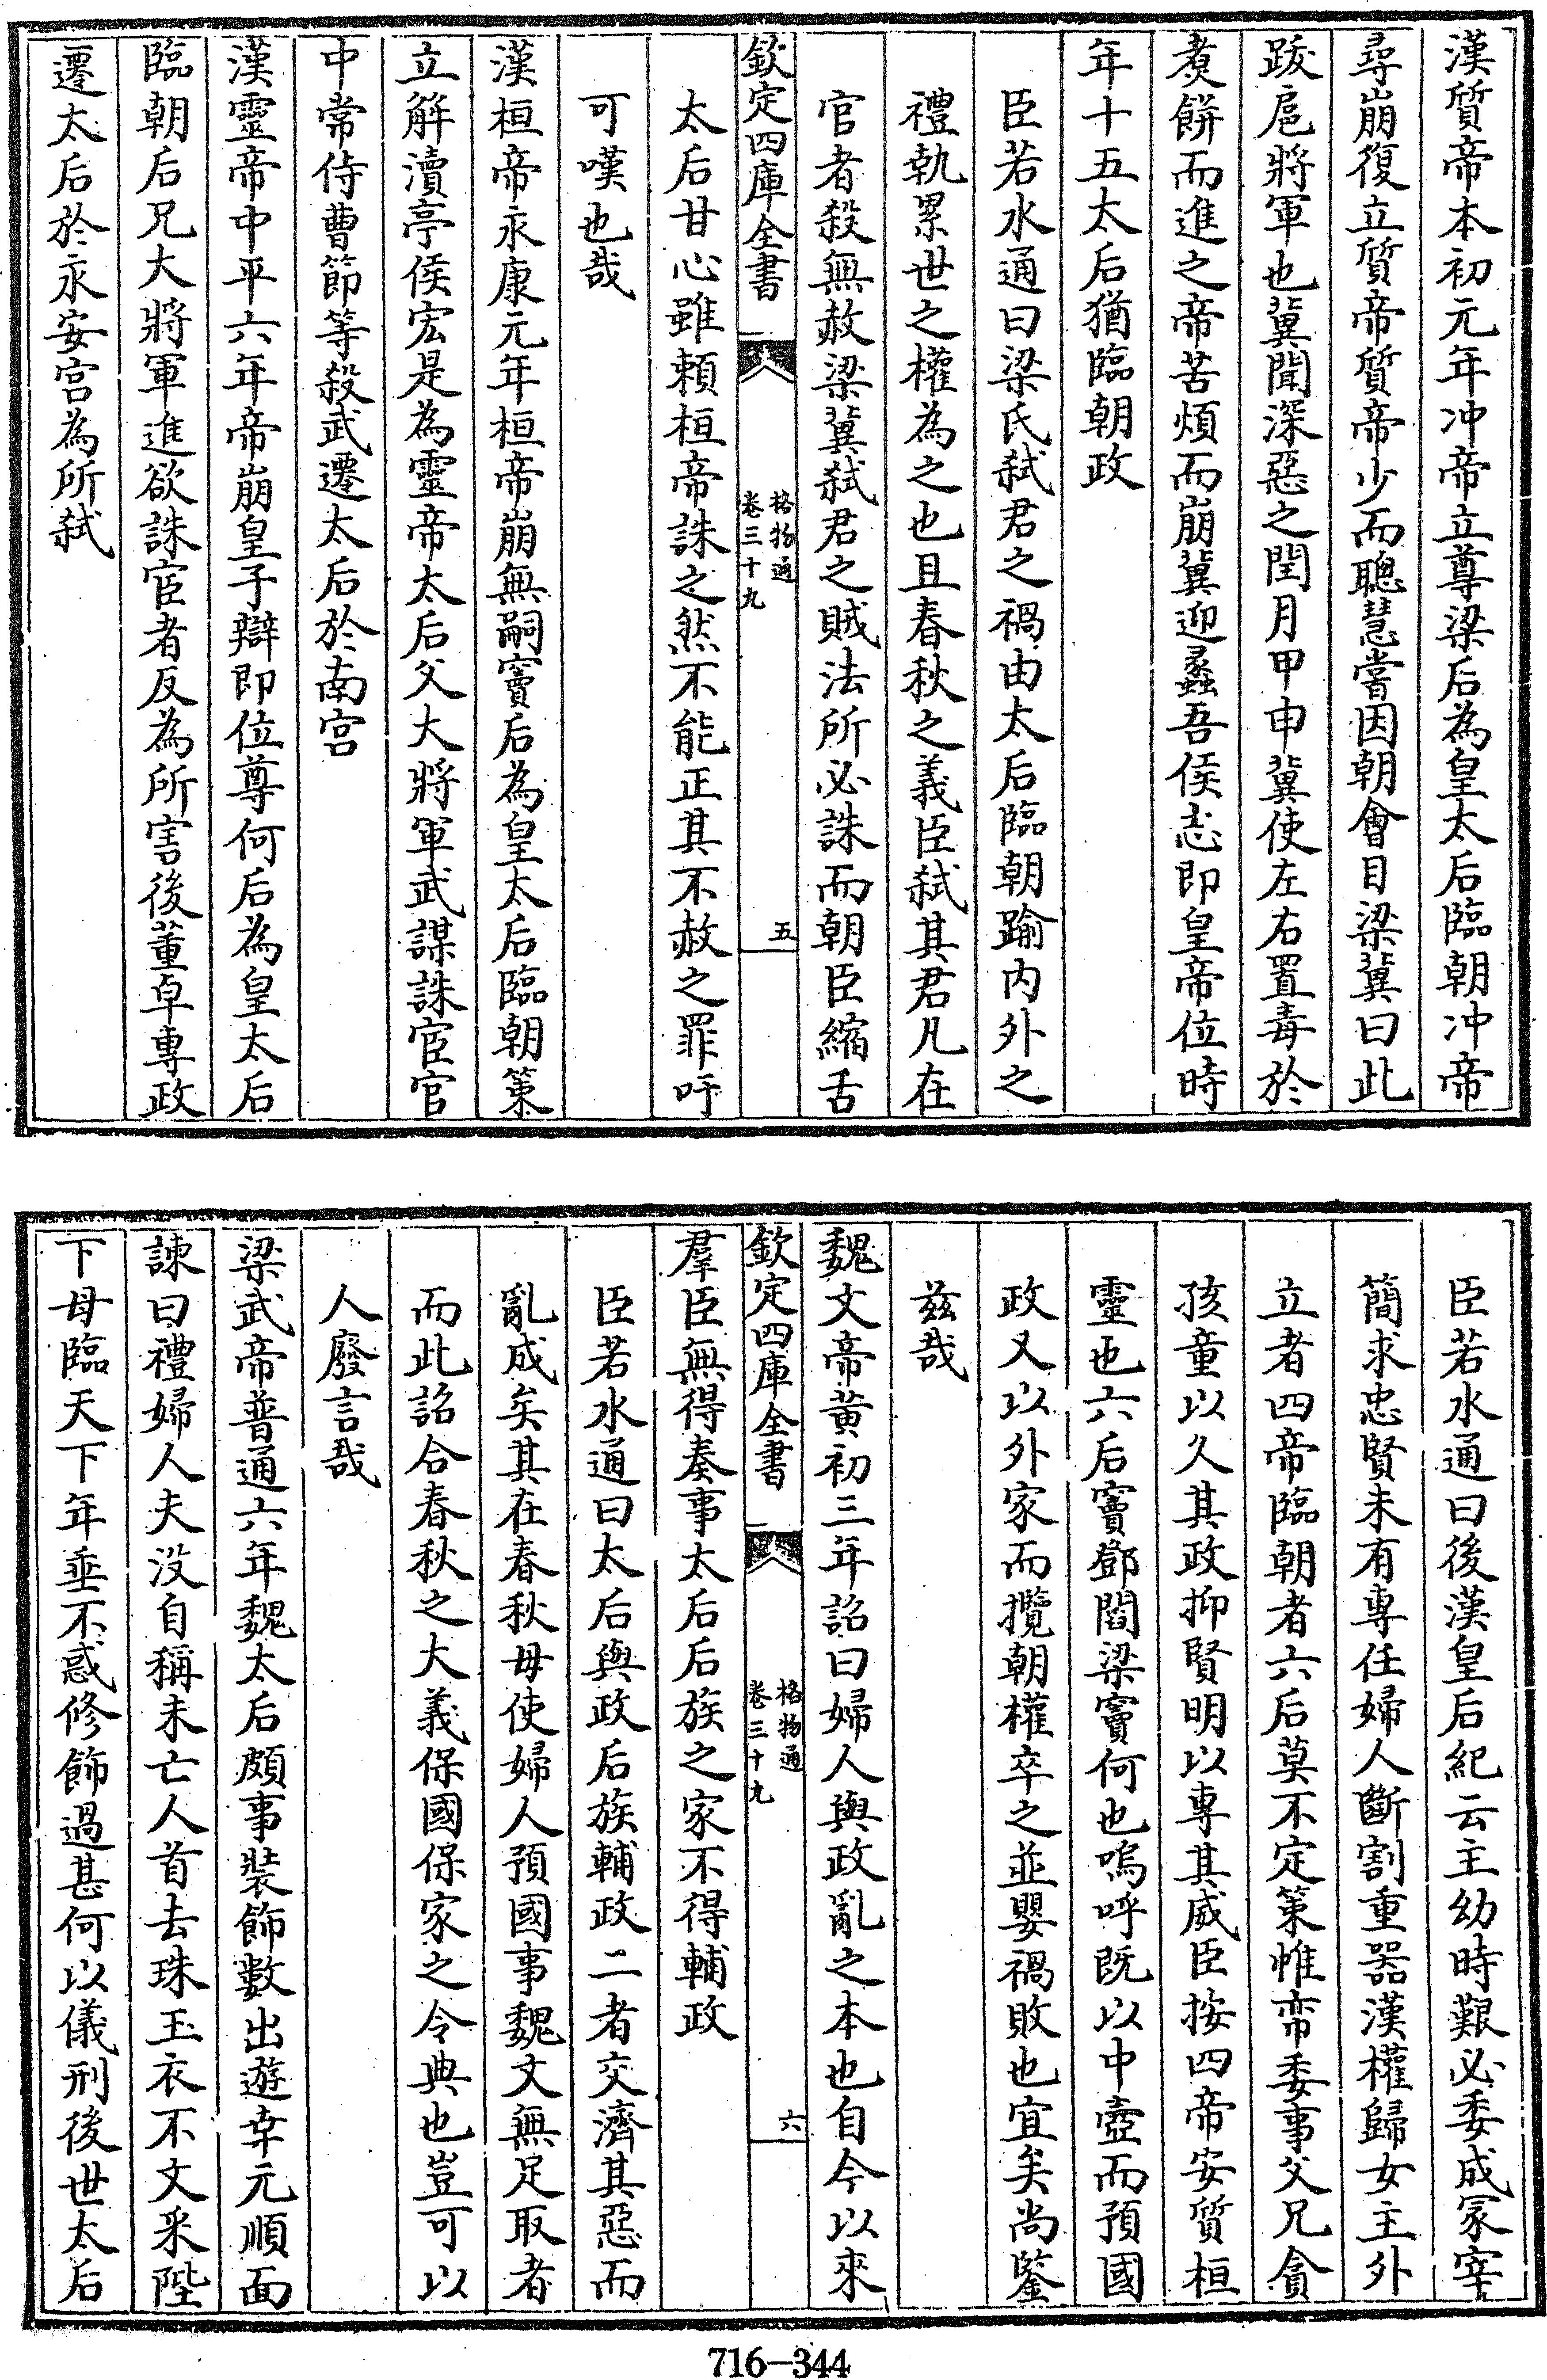 漢質帝本初元年冲帝立尊梁后為皇太后臨朝冲帝
尋崩復立質帝質帝少而聰慧嘗因朝會目梁冀曰此
跋扈將軍也冀聞深惡之閏月甲申冀使左右置毒於
煑餅而進之帝苦煩而崩冀迎蠡吾侯志即皇帝位時
年十五太后猶臨朝政
臣若水通曰梁氏弑君之禍由太后臨朝踰内外之
禮執累世之權為之也且春秋之義臣弑其君凡在
官者殺無赦梁冀弑君之賊法所必誅而朝臣縮舌
欽定四庫全書
格物通
卷三十九
五
太后甘心雖賴桓帝誅之然不能正其不赦之罪吁
可嘆也哉
漢桓帝永康元年桓帝崩無嗣竇后為皇太后臨朝策
立解瀆亭侯宏是為靈帝太后父大將軍武謀誅宦官
中常侍曹節等殺武遷太后於南宫
漢靈帝中平六年帝崩皇子辯即位尊何后為皇太后
臨朝后兄大將軍進欲誅宦者反為所害後董卓專政
遷太后於永安宫為所弑
臣若水通曰後漢皇后紀云主幼時艱必委成冡宰
簡求忠賢未有專任婦人斷割重器漢權歸女主外
立者四帝臨朝者六后莫不定策帷帟委事父兄貪
孩童以久其政抑賢明以專其威臣按四帝安質桓
靈也六后竇鄧閻梁竇何也嗚呼既以中壼而預國
政又以外家而攬朝權卒之並嬰禍敗也宜矣尚鑒
兹哉
魏文帝黄初三年詔曰婦人與政亂之本也自今以來
欽定四庫全書
格物通
卷三十九
六
羣臣無得奏事太后后族之家不得輔政
臣若水通曰太后與政后族輔政二者交濟其惡而
亂成矣其在春秋毋使婦人預國事魏文無足取者
而此詔合春秋之大義保國保家之令典也豈可以
人廢言哉
梁武帝普通六年魏太后頗事裝飾數出遊幸元順面
諫曰禮婦人夫没自稱未亡人首去珠玉衣不文采陛
下母臨天下年垂不惑修飾過甚何以儀刑後世太后
716-344